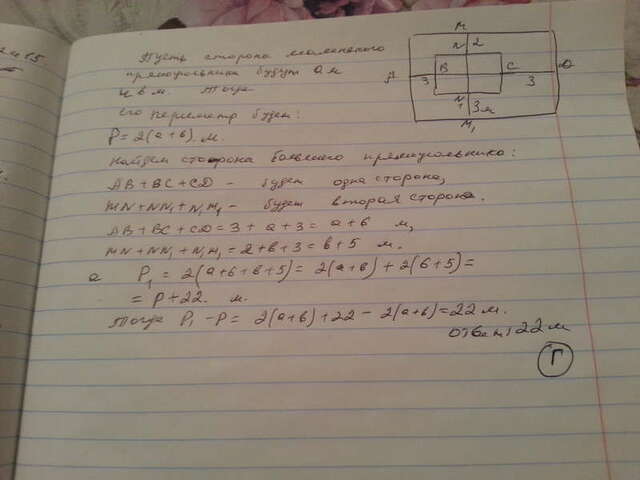 Пусть сторона маленького
прямоугольника будут а м
и в м. Тогда
его периметр будет:
P = 2(a+b) м.
Найдем сторона большего прямоугольника:
AB+BC+CD - будет одна сторона,
MN+NN₁+N₁M₁ - будет вторая сторона.
AB+BC+CD = 3+a+3 = a+6 м,
MN+NN₁+N₁M₁ = 2+b+3 = b+5 м.
P₁ = 2(a+6+b+5) = 2(a+b)+2(6+5) =
= P+22 м.
Тогда P₁-P = 2(a+b)+22-2(a+b) = 22 м.
ответ: 22 м
Г
M
N 2
A 3 B C 3 D
N₁ 3м
M₁